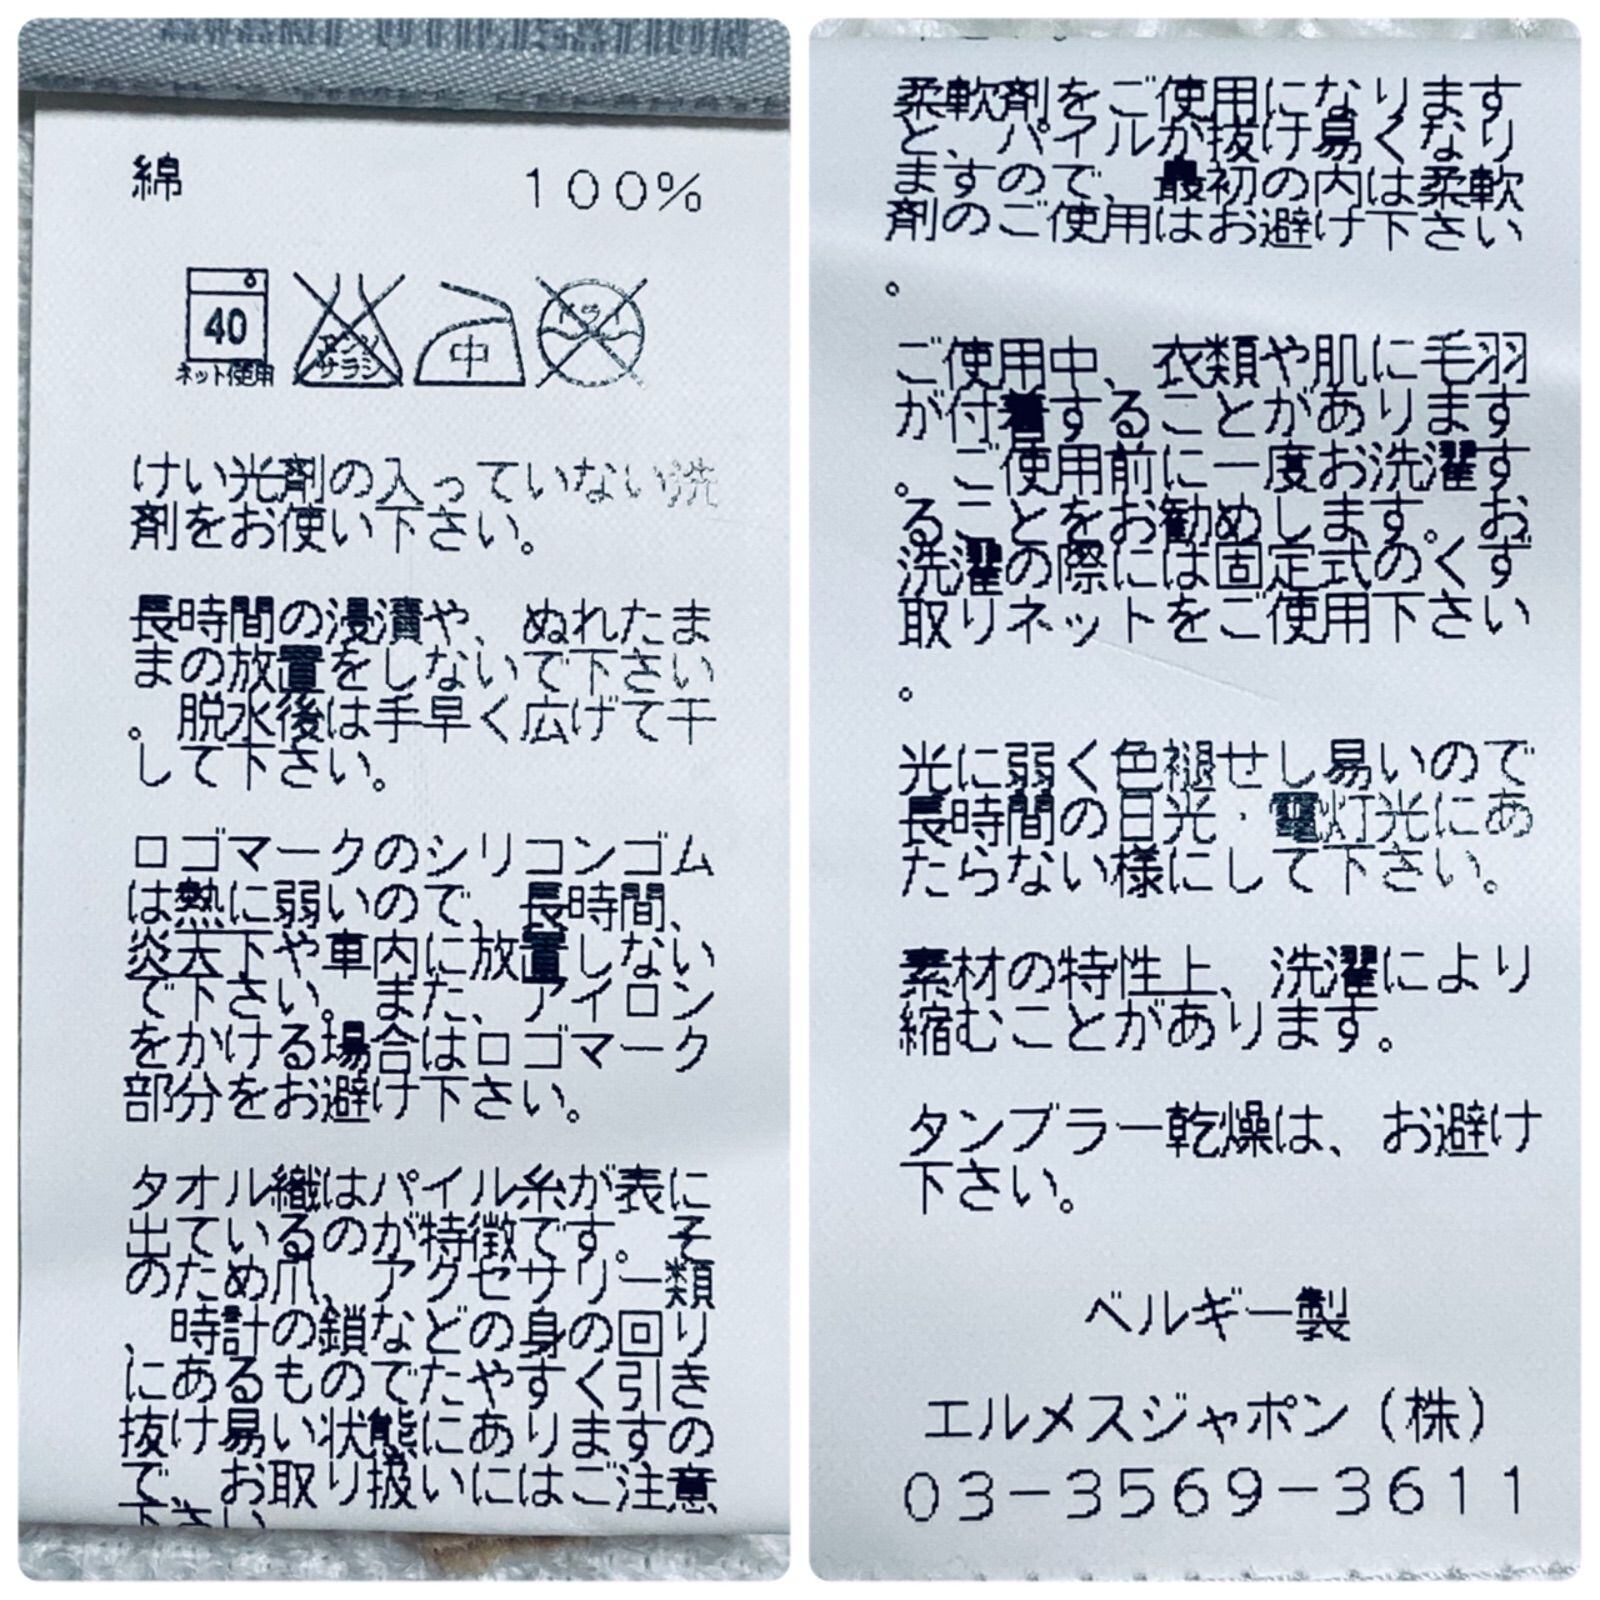 綿 100%
40
ネット使用
エンソ
サラシ
中
ドライ
けい光剤の入っていない洗
剤をお使い下さい。
長時間の浸漬や、ぬれたま
まの放置をしないで下さい
。脱水後は手早く広げて干
して下さい。
ロゴマークのシリコンゴム
は熱に弱いので、長時間、
炎天下や車内に放置しない
で下さい。また、アイロン
をかける場合はロゴマーク
部分をお避け下さい。
タオル織はパイル糸が表に
出ているのが特徴です。そ
のため爪、アクセサリー類
、時計の鎖などの身の回り
にあるものでたやすく引き
抜け易い状態にありますの
で、お取り扱いにはご注意
下さい
柔軟剤をご使用になります
と、パイルが抜け易くなり
ますので、最初の内は柔軟
剤のご使用はお避け下さい
。
ご使用中、衣類や肌に毛羽
が付着することがあります
。ご使用前に一度お洗濯す
ることをお勧めします。お
洗濯の際には固定式のくず
取りネットをご使用下さい
。
光に弱く色褪せし易いので
長時間の日光・電灯光にあ
たらない様にして下さい。
素材の特性上、洗濯により
縮むことがあります。
タンブラー乾燥は、お避け
下さい。
ベルギー製
エルメスジャポン(株)
03-3569-3611